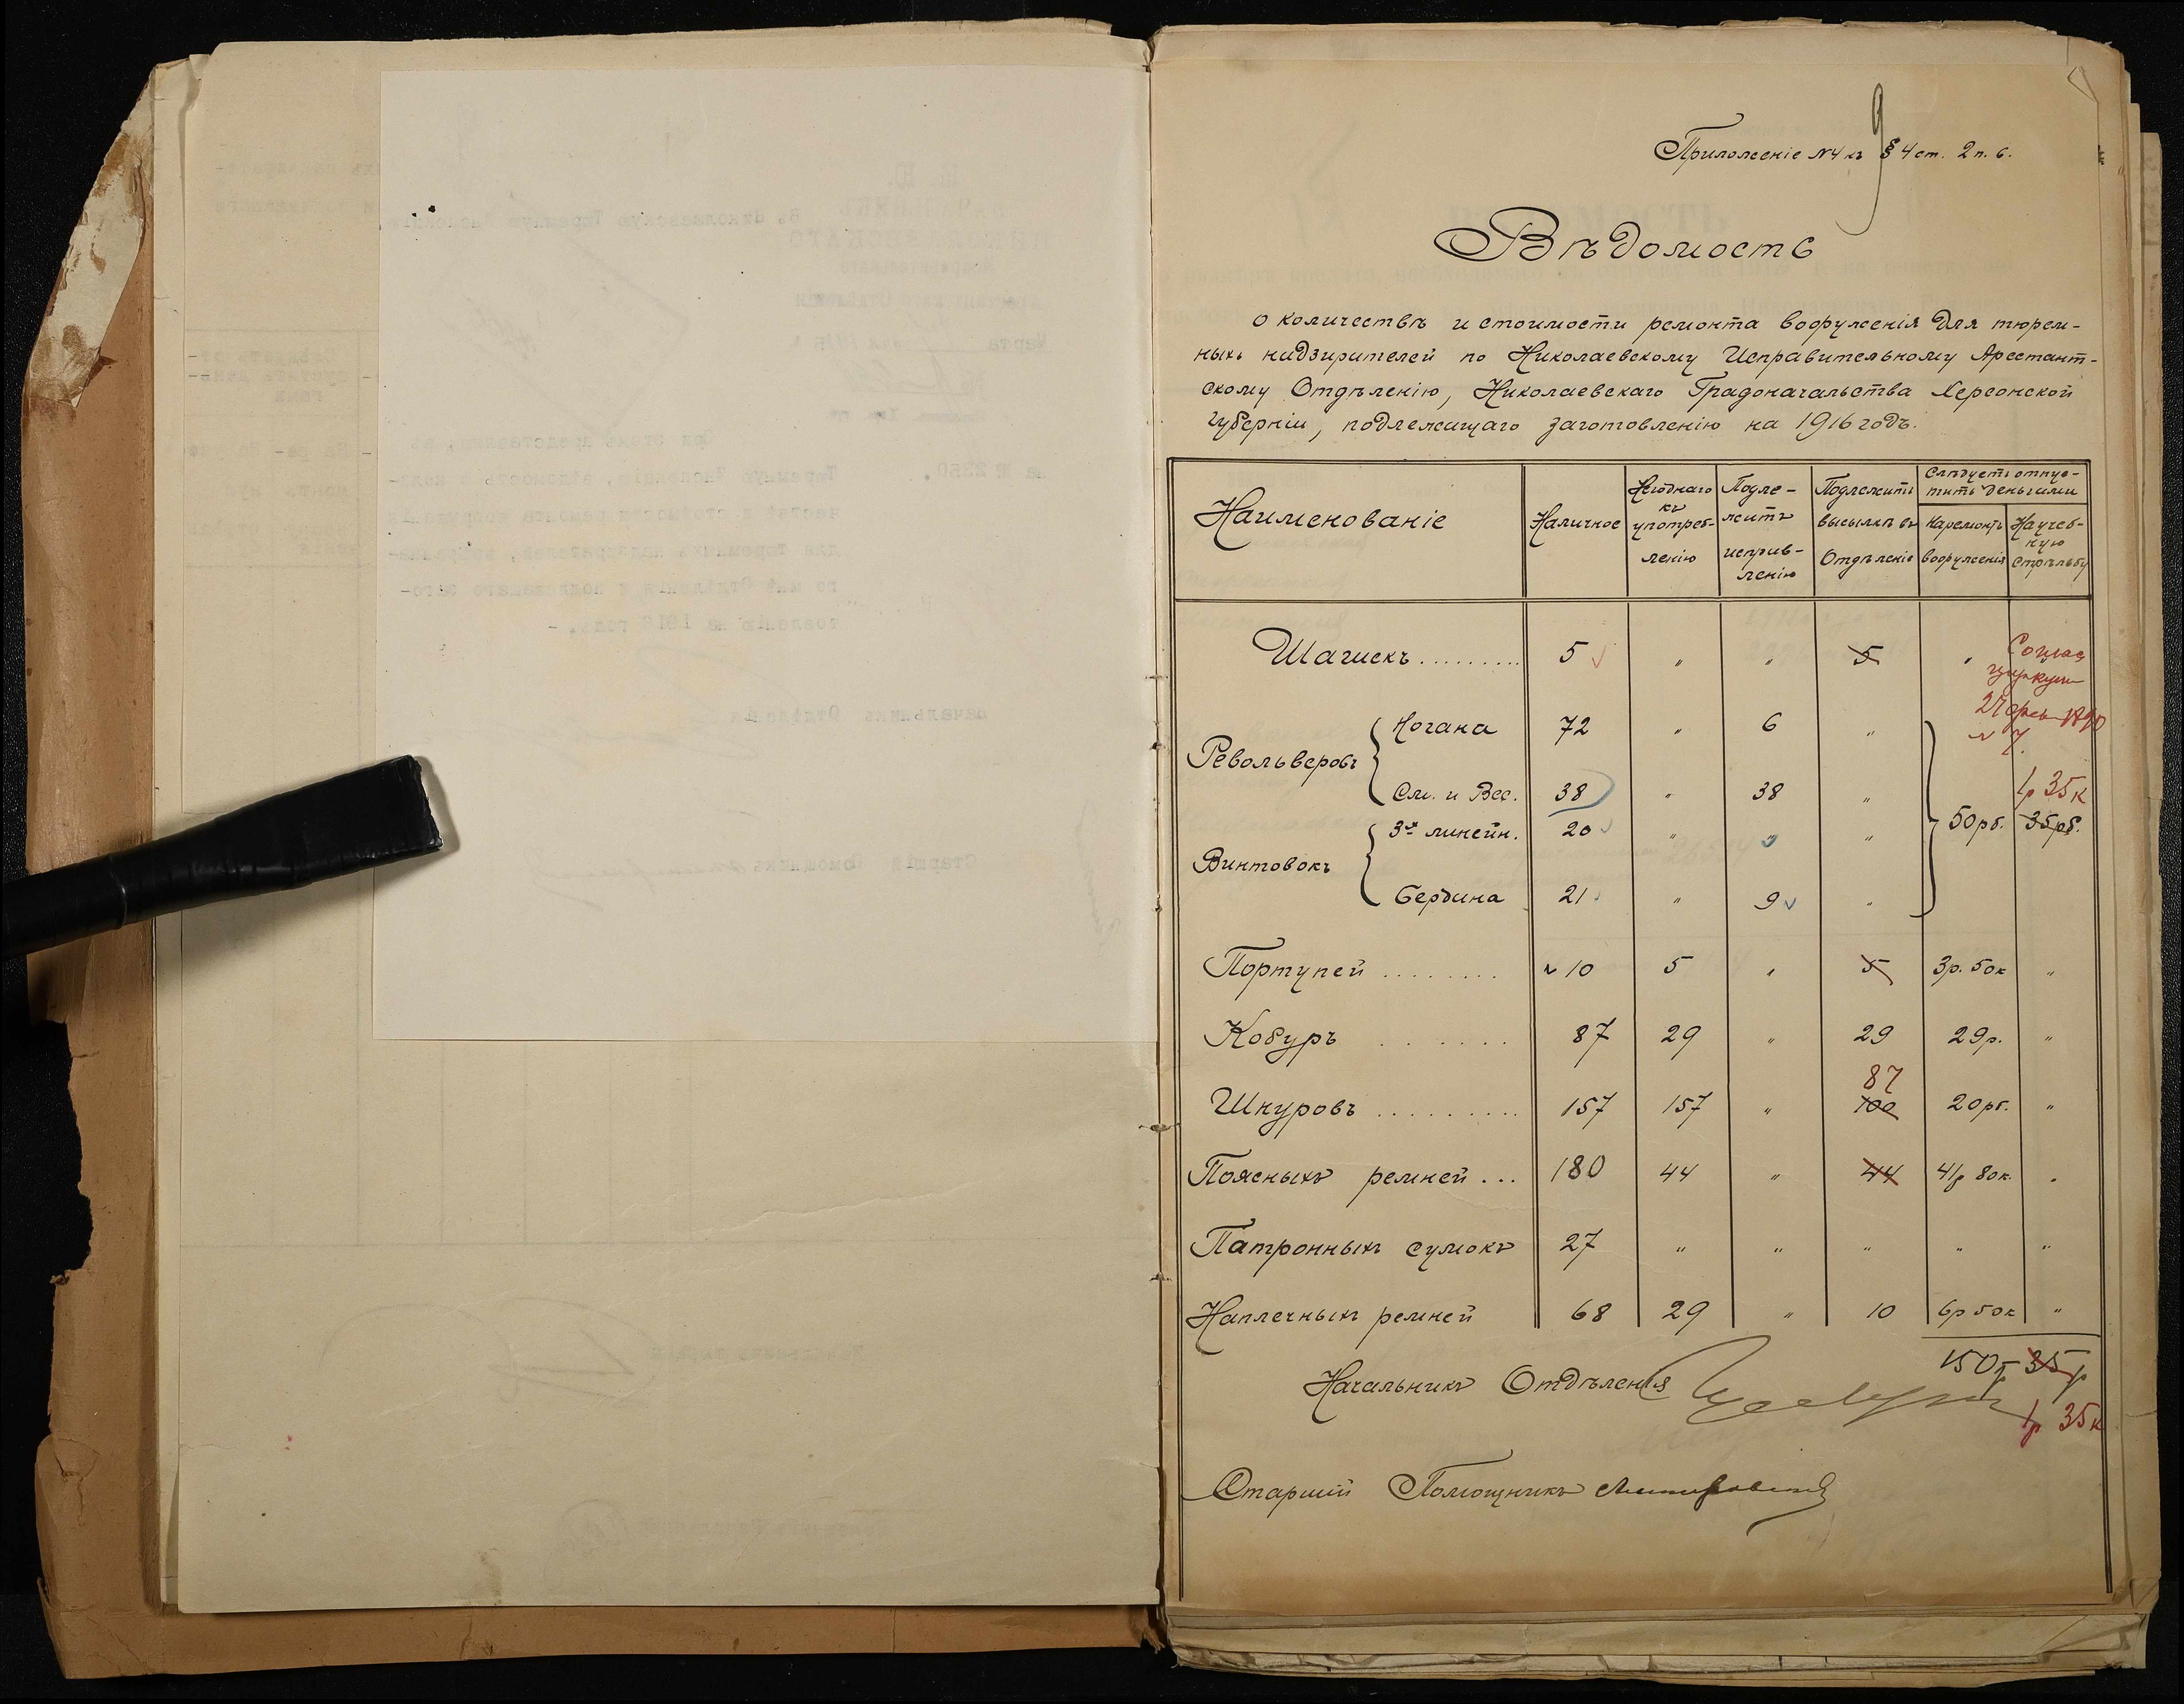 9
Приложеніе №4 къ § 4 ст. 2 п. б.
Вѣдомость
о количествѣ и стоимости ремонта вооруженія для тюрем-
ныхъ надзирателей по Николаевскому Исправительному Арестант-
скому Отдѣленію, Николаевскаго Градоначальства Херсонской
губерніи, подлежащаго заготовленію на 1916 годъ.
Наименованіе | Наличное | Негоднаго къ употреб-ленію | Подле-житъ исправ-ленію | Подлежитъ высылкѣ въ Отдѣленіе | Слѣдуетъ отпус-тить деньгами
На ремонтъ вооруженія | На учеб-ную стрѣльбу
Шашекъ......... 5 " " 5 "
Соглас
циркуля
27 1890
№ 7.
Револьверовъ { Ногана 72 " 6 "
См. и Вес. 38 " 38 "
1р 35к
50 рб. 35 рб.
Винтовокъ { 3х линейн. 20 " " "
Бердана 21 " 9 "
Портупей ........ 10 5 " 5 3р. 50к "
Кобуръ ....... 87 29 " 29 29р. "
87
Шнуровъ ......... 157 157 " 100 20 рб. "
Поясныхъ ремней ... 180 44 " 44 41р 80к. "
Патронныхъ сумокъ 27 " " " " "
Наплечныхъ ремней 68 29 " 10 6р 50к "
150р 35р
Начальникъ Отдѣленія
1р 35к
Старшій Помощникъ